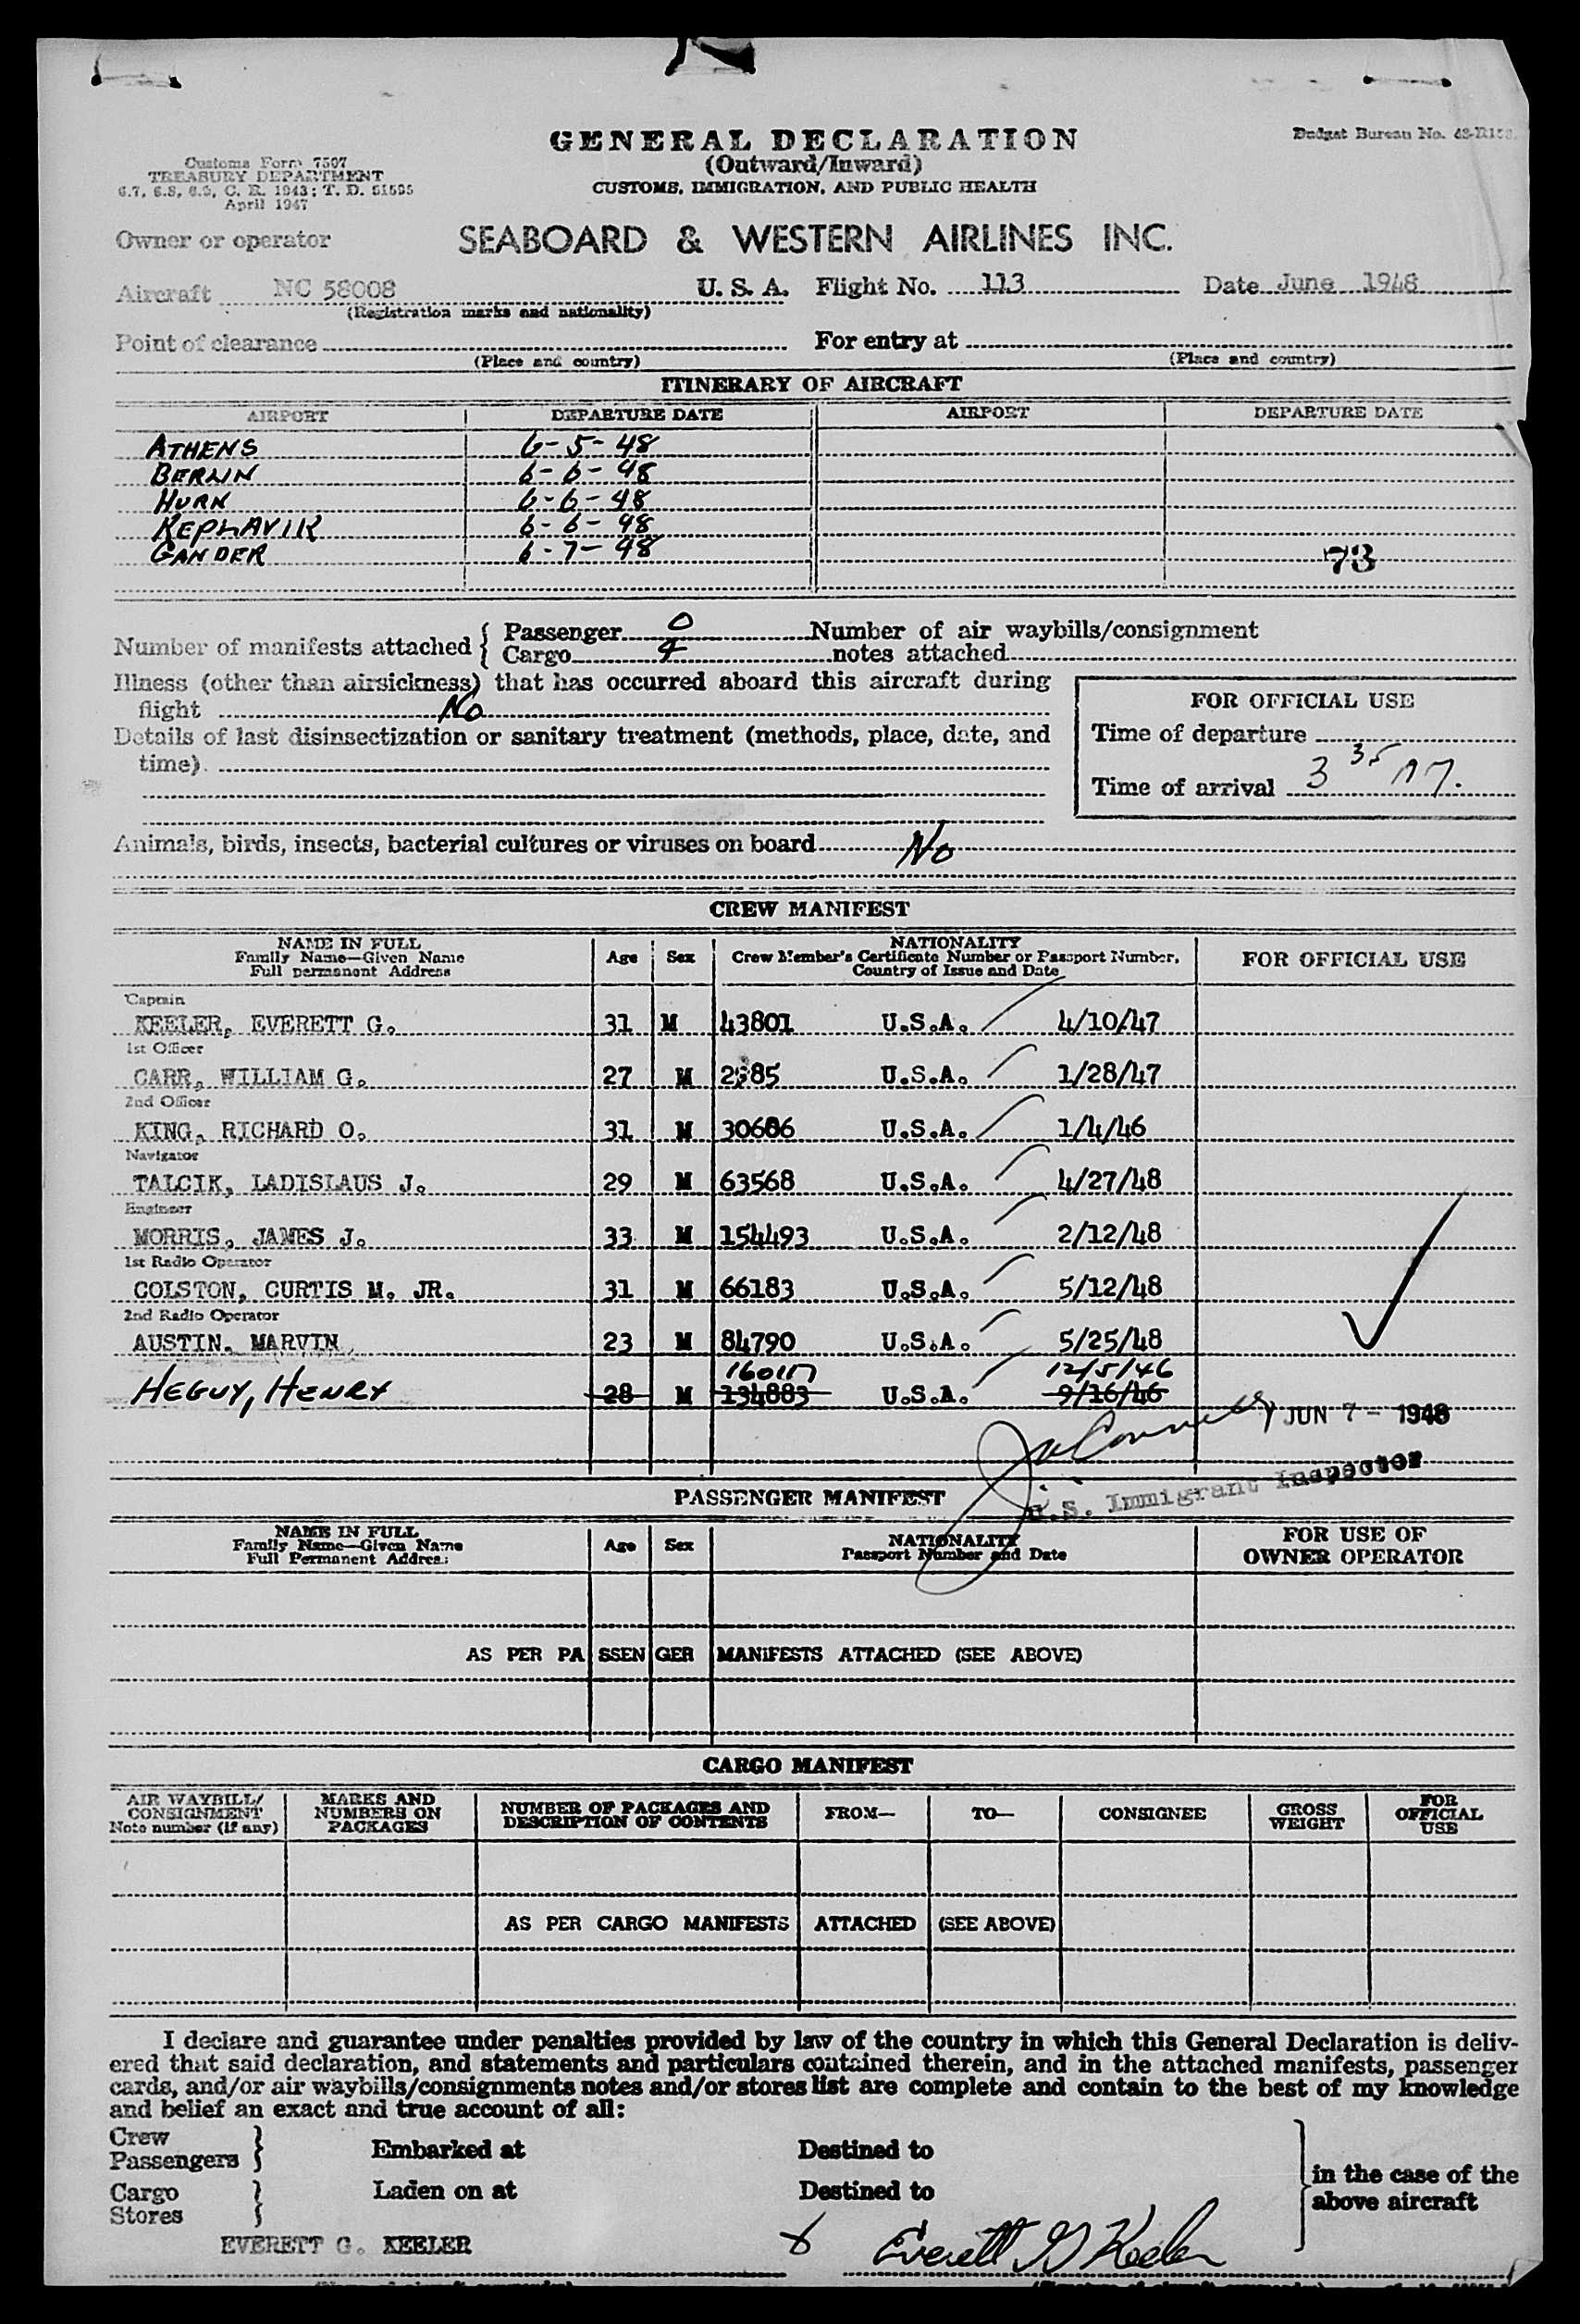 GENERAL DECLARATION
(Outward/Inward)
CUSTOMS, IMMIGRATION, AND PUBLIC HEALTH
Budget Bureau No.
Customs Form 7507
TREASURY DEPARTMENT
6.7, 6.8, 6.9, C. R. 1943; T. D. 51595
April 1947
Owner or operator SEABOARD & WESTERN AIRLINES INC.
Aircraft NC 58008 U. S. A. Flight No. 113 Date June 1948
(Registration marks and nationality)
Point of clearance For entry at
(Place and country) (Place and country)
ITINERARY OF AIRCRAFT
AIRPORT DEPARTURE DATE AIRPORT DEPARTURE DATE
ATHENS 6-5-48
BERLIN 6-6-48
HURN 6-6-48
KEPLAVIK 6-6-48
GANDER 6-7-48
73
Number of manifests attached { Passenger 0 Number of air waybills/consignment
Cargo 4 notes attached
Illness (other than airsickness) that has occurred aboard this aircraft during
flight No
Details of last disinsectization or sanitary treatment (methods, place, date, and
time)
FOR OFFICIAL USE
Time of departure
Time of arrival 3 35
Animals, birds, insects, bacterial cultures or viruses on board No
CREW MANIFEST
NAME IN FULL
Family Name—Given Name
Full permanent Address
Age Sex
NATIONALITY
Crew Member's Certificate Number or Passport Number,
Country of Issue and Date
FOR OFFICIAL USE
Captain
KEELER, EVERETT G. 31 M 43801 U.S.A. 4/10/47
1st Officer
CARR, WILLIAM G. 27 M U.S.A. 1/28/47
2nd Officer
KING, RICHARD O. 31 M 30686 U.S.A. 1/4/46
Navigator
TALCIK, LADISLAUS J. 29 M 63568 U.S.A. 4/27/48
Engineer
MORRIS, JAMES J. 33 M 154493 U.S.A. 2/12/48
1st Radio Operator
COLSTON, CURTIS M. JR. 31 M 66183 U.S.A. 5/12/48
2nd Radio Operator
AUSTIN. MARVIN 23 M 84790 U.S.A. 5/25/48
160117 12/5/46
HEGUY, HENRY 28 M 134883 U.S.A. 9/16/46
JUN 7 - 1948
U.S. Immigrant Inspector
PASSENGER MANIFEST
NAME IN FULL
Family Name—Given Name
Full Permanent Address
Age Sex
NATIONALITY
Passport Number and Date
FOR USE OF
OWNER OPERATOR
AS PER PASSENGER MANIFESTS ATTACHED (SEE ABOVE)
CARGO MANIFEST
AIR WAYBILL/
CONSIGNMENT
Note number (if any)
MARKS AND
NUMBERS ON
PACKAGES
NUMBER OF PACKAGES AND
DESCRIPTION OF CONTENTS
FROM— TO— CONSIGNEE
GROSS
WEIGHT
FOR
OFFICIAL
USE
AS PER CARGO MANIFESTS ATTACHED (SEE ABOVE)
I declare and guarantee under penalties provided by law of the country in which this General Declaration is deliv-
ered that said declaration, and statements and particulars contained therein, and in the attached manifests, passenger
cards, and/or air waybills/consignments notes and/or stores list are complete and contain to the best of my knowledge
and belief an exact and true account of all:
Crew
Passengers } Embarked at Destined to
in the case of the
Cargo
Stores } Laden on at Destined to
above aircraft
EVERETT G. KEELER X Everett G Keeler